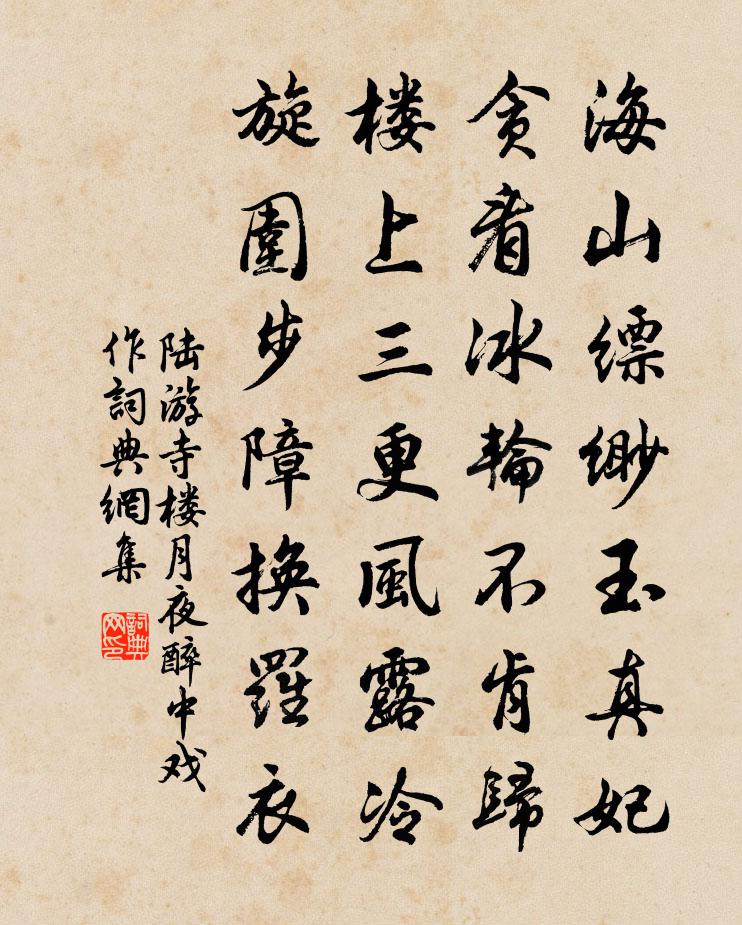 海山缥缈玉真妃
贪看冰輪不肯歸
楼上三更風露冷
旋圍步障換羅衣
陆游寺楼月夜醉中戏
作詞典網集
詞典网印